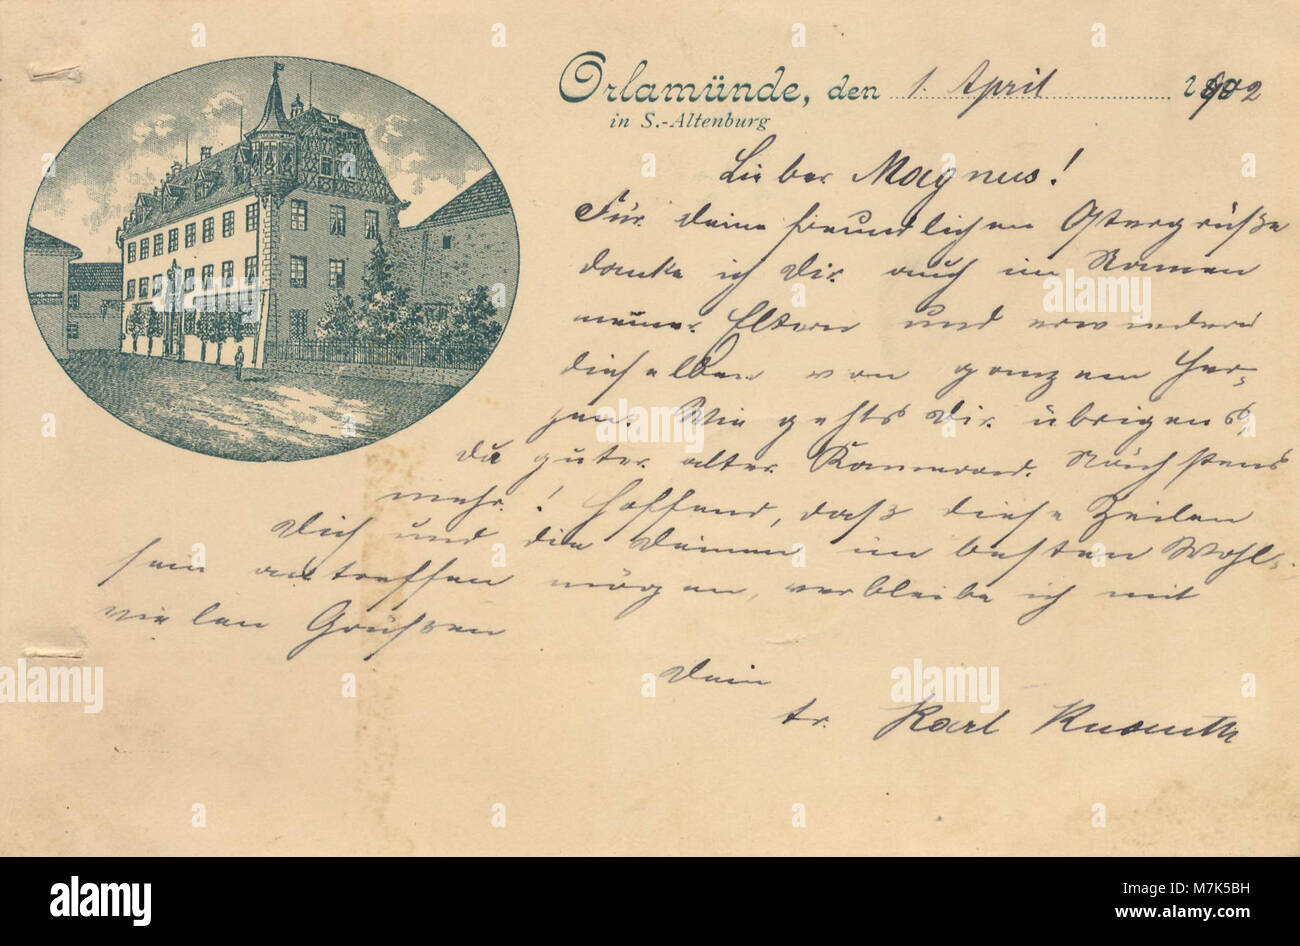 Orlamünde, den 1. April 1902
in S.-Altenburg
Lieber Magnus!
Für Deine freundlichen Ostergrüße
danke ich Dir auch im Namen
meiner Eltern und erwidere
dieselben von ganzem Her-
zen. Wie gehts Dir übrigens,
Du guter alter Kamerad. Nächstens
mehr! Hoffend, daß diese Zeilen
Dich und die Deinen im besten Wohl-
sein antreffen mögen, verbleibe ich mit
vielen Grüßen
Dein
tr. Karl
a
alamy
Image ID: M7K5BH
www.alamy.com